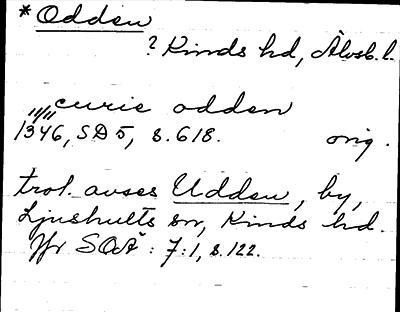 *Odden
? Kinds hd, Älvsb. l.
curie odden
11/11
1346, SD 5, s. 618. orig.
trol. avses Udden, by,
Ljushults sn, Kinds hd.
Jfr SOÄ: 7:1, s. 122.